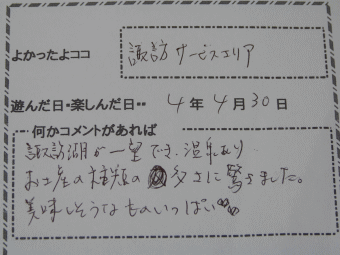 よかったよココ 諏訪サービスエリア
遊んだ日・楽しんだ日・・ 4年4月30日
何かコメントがあれば
諏訪湖が一望でき、温泉あり、
お土産の種類の多さに驚きました。
美味しそうなものいっぱい